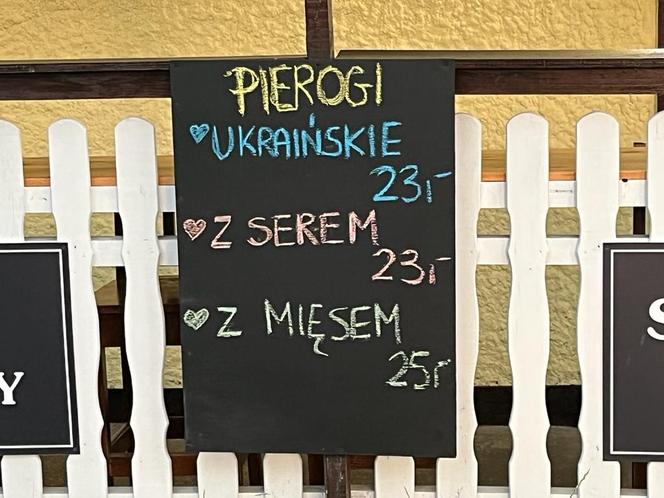 PIEROGI
♥UKRAIŃSKIE
23,-
♥ Z SEREM
23,-
♥ Z MIĘSEM
25,-
Y
S